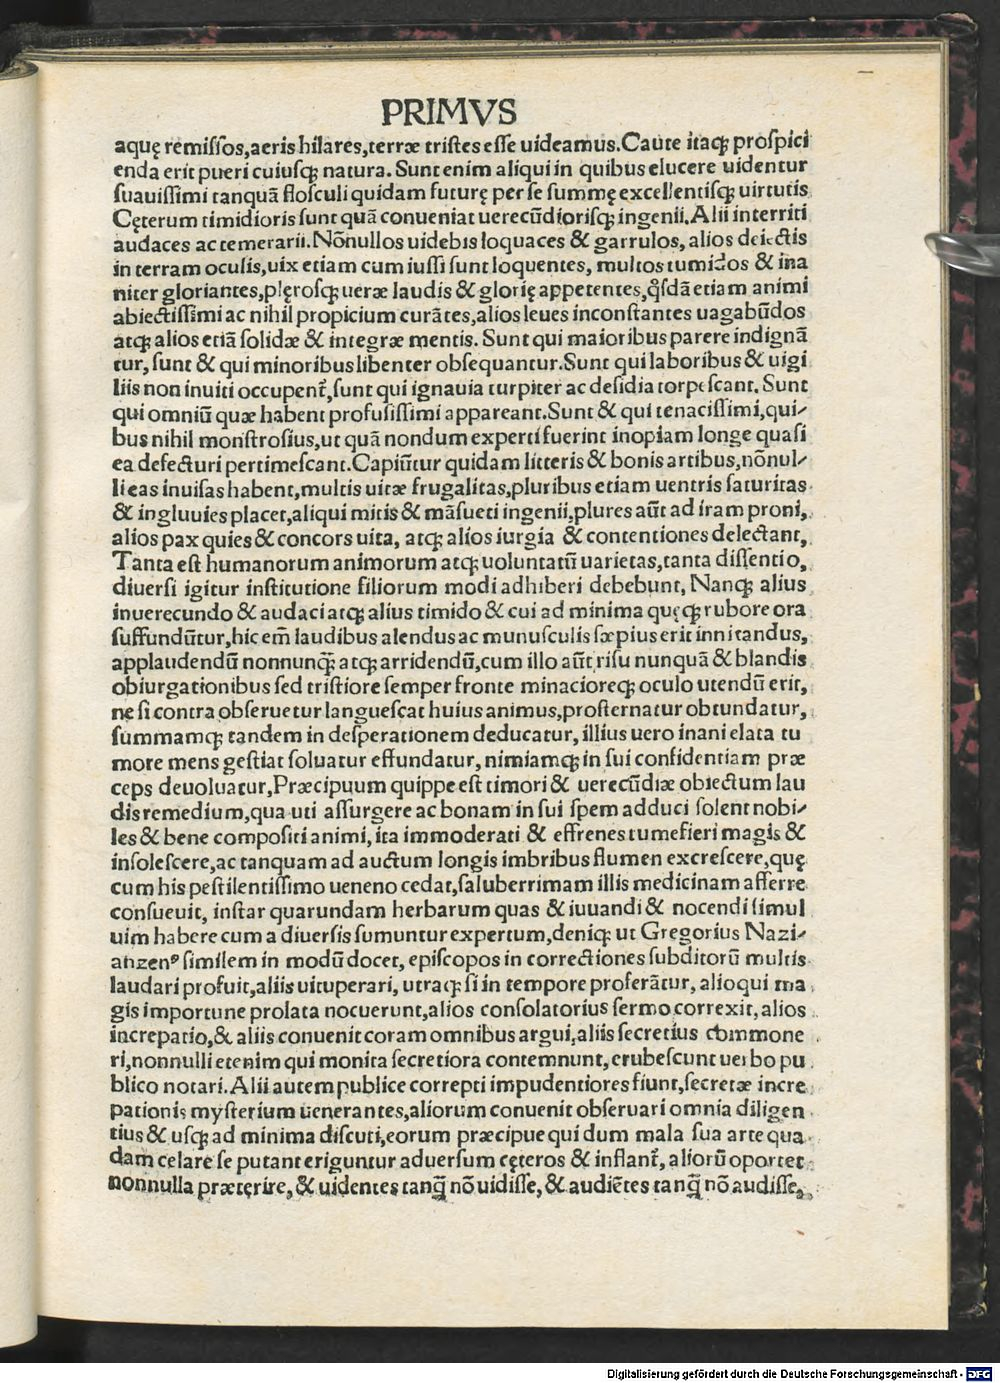 PRIMVS
aquę remiſſos,aeris hilares,terræ triſtes eſſe uideamus.Caute itaqꝫ proſpici
enda erit pueri cuiuſqꝫ natura. Sunt enim aliqui in quibus elucere uidentur
ſuauiſſimi tanquā floſculi quidam futurę per ſe ſummę excellentiſqꝫ uirtutis
Cęterum timidioris ſunt quā conueniat uerecūdioriſqꝫ ingenii.Alii interriti
audaces ac temerarii.Nōnullos uidebis loquaces & garrulos, alios deiectis
in terram oculis,uix etiam cum iuſſi ſunt loquentes, multos tumidos & ina
niter gloriantes,plęroſqꝫ ueræ laudis & glorię appetentes,qͦſdā etiam animi
abiectiſſimi ac nihil propicium curātes,alios leues inconſtantes uagabūdos
atqꝫ alios etiā ſolidæ & integræ mentis. Sunt qui maioribus parere indignā
tur, ſunt & qui minoribus libenter obſequantur.Sunt qui laboribus & uigi
liis non inuiti occupent᷑,ſunt qui ignauia turpiter ac deſidia torpeſcant. Sunt
qui omniū quæ habent profuſiſſimi appareant.Sunt & qui tenaciſſimi,qui⸗
bus nihil monſtroſius,ut quā nondum experti fuerint inopiam longe quaſi
ea defecturi pertimeſcant.Capiūtur quidam litteris & bonis artibus,nōnul⸗
li eas inuiſas habent,multis uitæ frugalitas,pluribus etiam uentris ſaturitas
& ingluuies placet,aliqui mitis & māſueti ingenii,plures aūt ad iram proni,
alios pax quies & concors uita, atqꝫ alios iurgia & contentiones delectant,
Tanta eſt humanorum animorum atqꝫ uoluntatū uarietas,tanta diſſentio,
diuerſi igitur inſtitutione filiorum modi adhiberi debebunt, Nanqꝫ alius
inuerecundo & audaci atqꝫ alius timido & cui ad minima quęqꝫ rubore ora
ſuffundūtur,hic em̄ laudibus alendus ac munuſculis ſæpius erit innitandus,
applaudendū nonnunqꝫ̄ atqꝫ arridendū,cum illo aūt riſu nunquā & blandis
obiurgationibus ſed triſtiore ſemper fronte minacioreqꝫ oculo utendū erit,
ne ſi contra obſeruetur langueſcat huius animus,proſternatur obtundatur,
ſummamqꝫ tandem in deſperationem deducatur, illius uero inani elata tu
more mens geſtiat ſoluatur effundatur, nimiamqꝫ in ſui confidentiam præ
ceps deuoluatur,Præcipuum quippe eſt timori & uerecūdiæ obiectum lau
dis remedium,qua uti aſſurgere ac bonam in ſui ſpem adduci ſolent nobi⸗
les & bene compoſiti animi, ita immoderati & effrenes tumefieri magis &
inſoleſcere,ac tanquam ad auctum longis imbribus flumen excreſcere,quę
cum his peſtilentiſſimo ueneno cedat,ſaluberrimam illis medicinam afferre
conſueuit, inſtar quarundam herbarum quas & iuuandi & nocendi ſimul
uim habere cum a diuerſis ſumuntur expertum,deniqꝫ ut Gregorius Nazi⸗
anzenꝰ ſimilem in modū docet, epiſcopos in correctiones ſubditorū multis
laudari profuit,aliis uituperari, utraqꝫ ſi in tempore proferātur, alioqui ma
gis importune prolata nocuerunt,alios conſolatorius ſermo correxit, alios
increpatio,& aliis conuenit coram omnibus argui,aliis ſecretius commone
ri,nonnulli etenim qui monita ſecretiora contemnunt, erubeſcunt uerbo pu
blico notari.Alii autem publice correpti impudentiores fiunt,ſecretæ incre
pationis myſterium uenerantes,aliorum conuenit obſeruari omnia diligen
tius & uſqꝫ ad minima diſcuti,eorum præcipue qui dum mala ſua arte qua
dam celare ſe putant eriguntur aduerſum cęteros & inflant᷑, aliorū oportet
nonnulla præterire, & uidentes tanqꝫ̄ nō uidiſſe, & audiētes tanqꝫ̄ nō audiſſe,
Digitalisierung gefördert durch die Deutsche Forschungsgemeinschaft - DFG